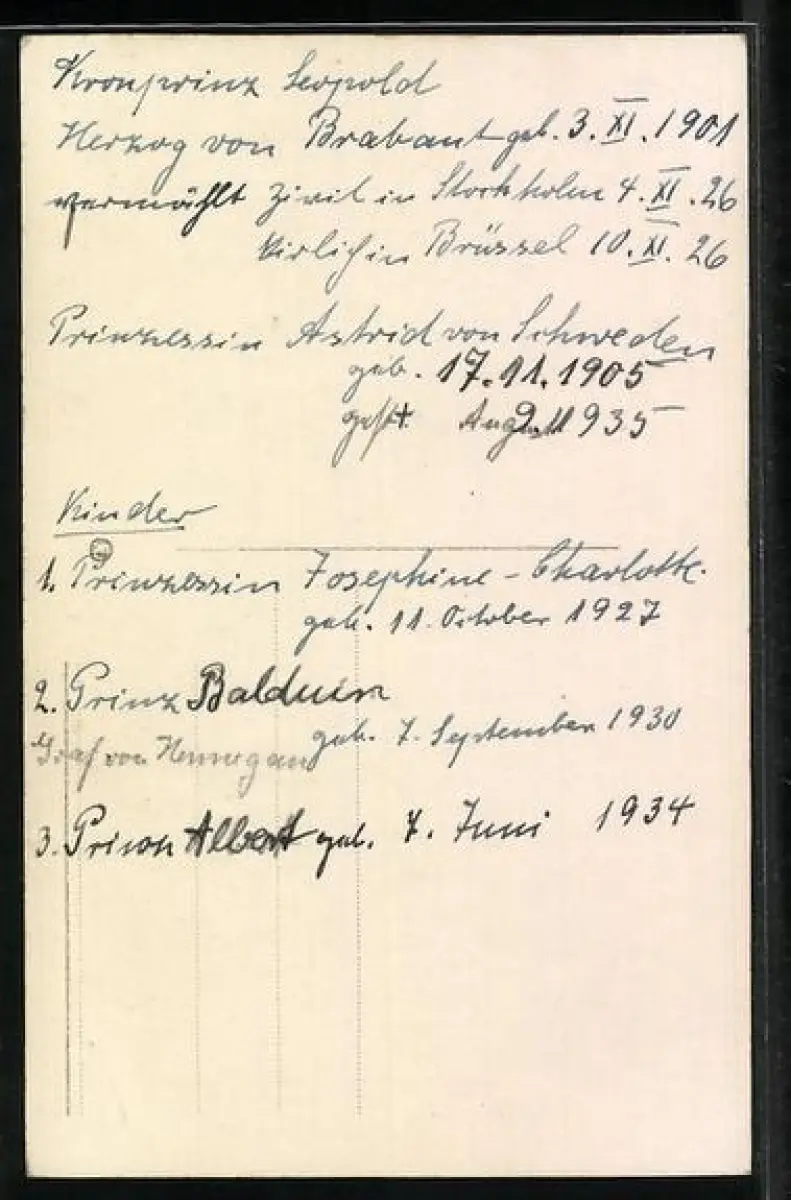 Kronprinz Leopold
Herzog von Brabant geb. 3. XI. 1901
vermählt Zivil in Stockholm 4. XI. 26
kirlich in Brüssel 10. XI. 26
Prinzessin Astrid von Schweden
geb. 17.11.1905
gest August 1935
Kinder
1. Prinzessin Josephine-Charlotte.
geb. 11. October 1927
2. Prinz Balduin
geb. 7. September 1930
Graf von Hennegau
3. Prinz Albert geb. 7. Juni 1934